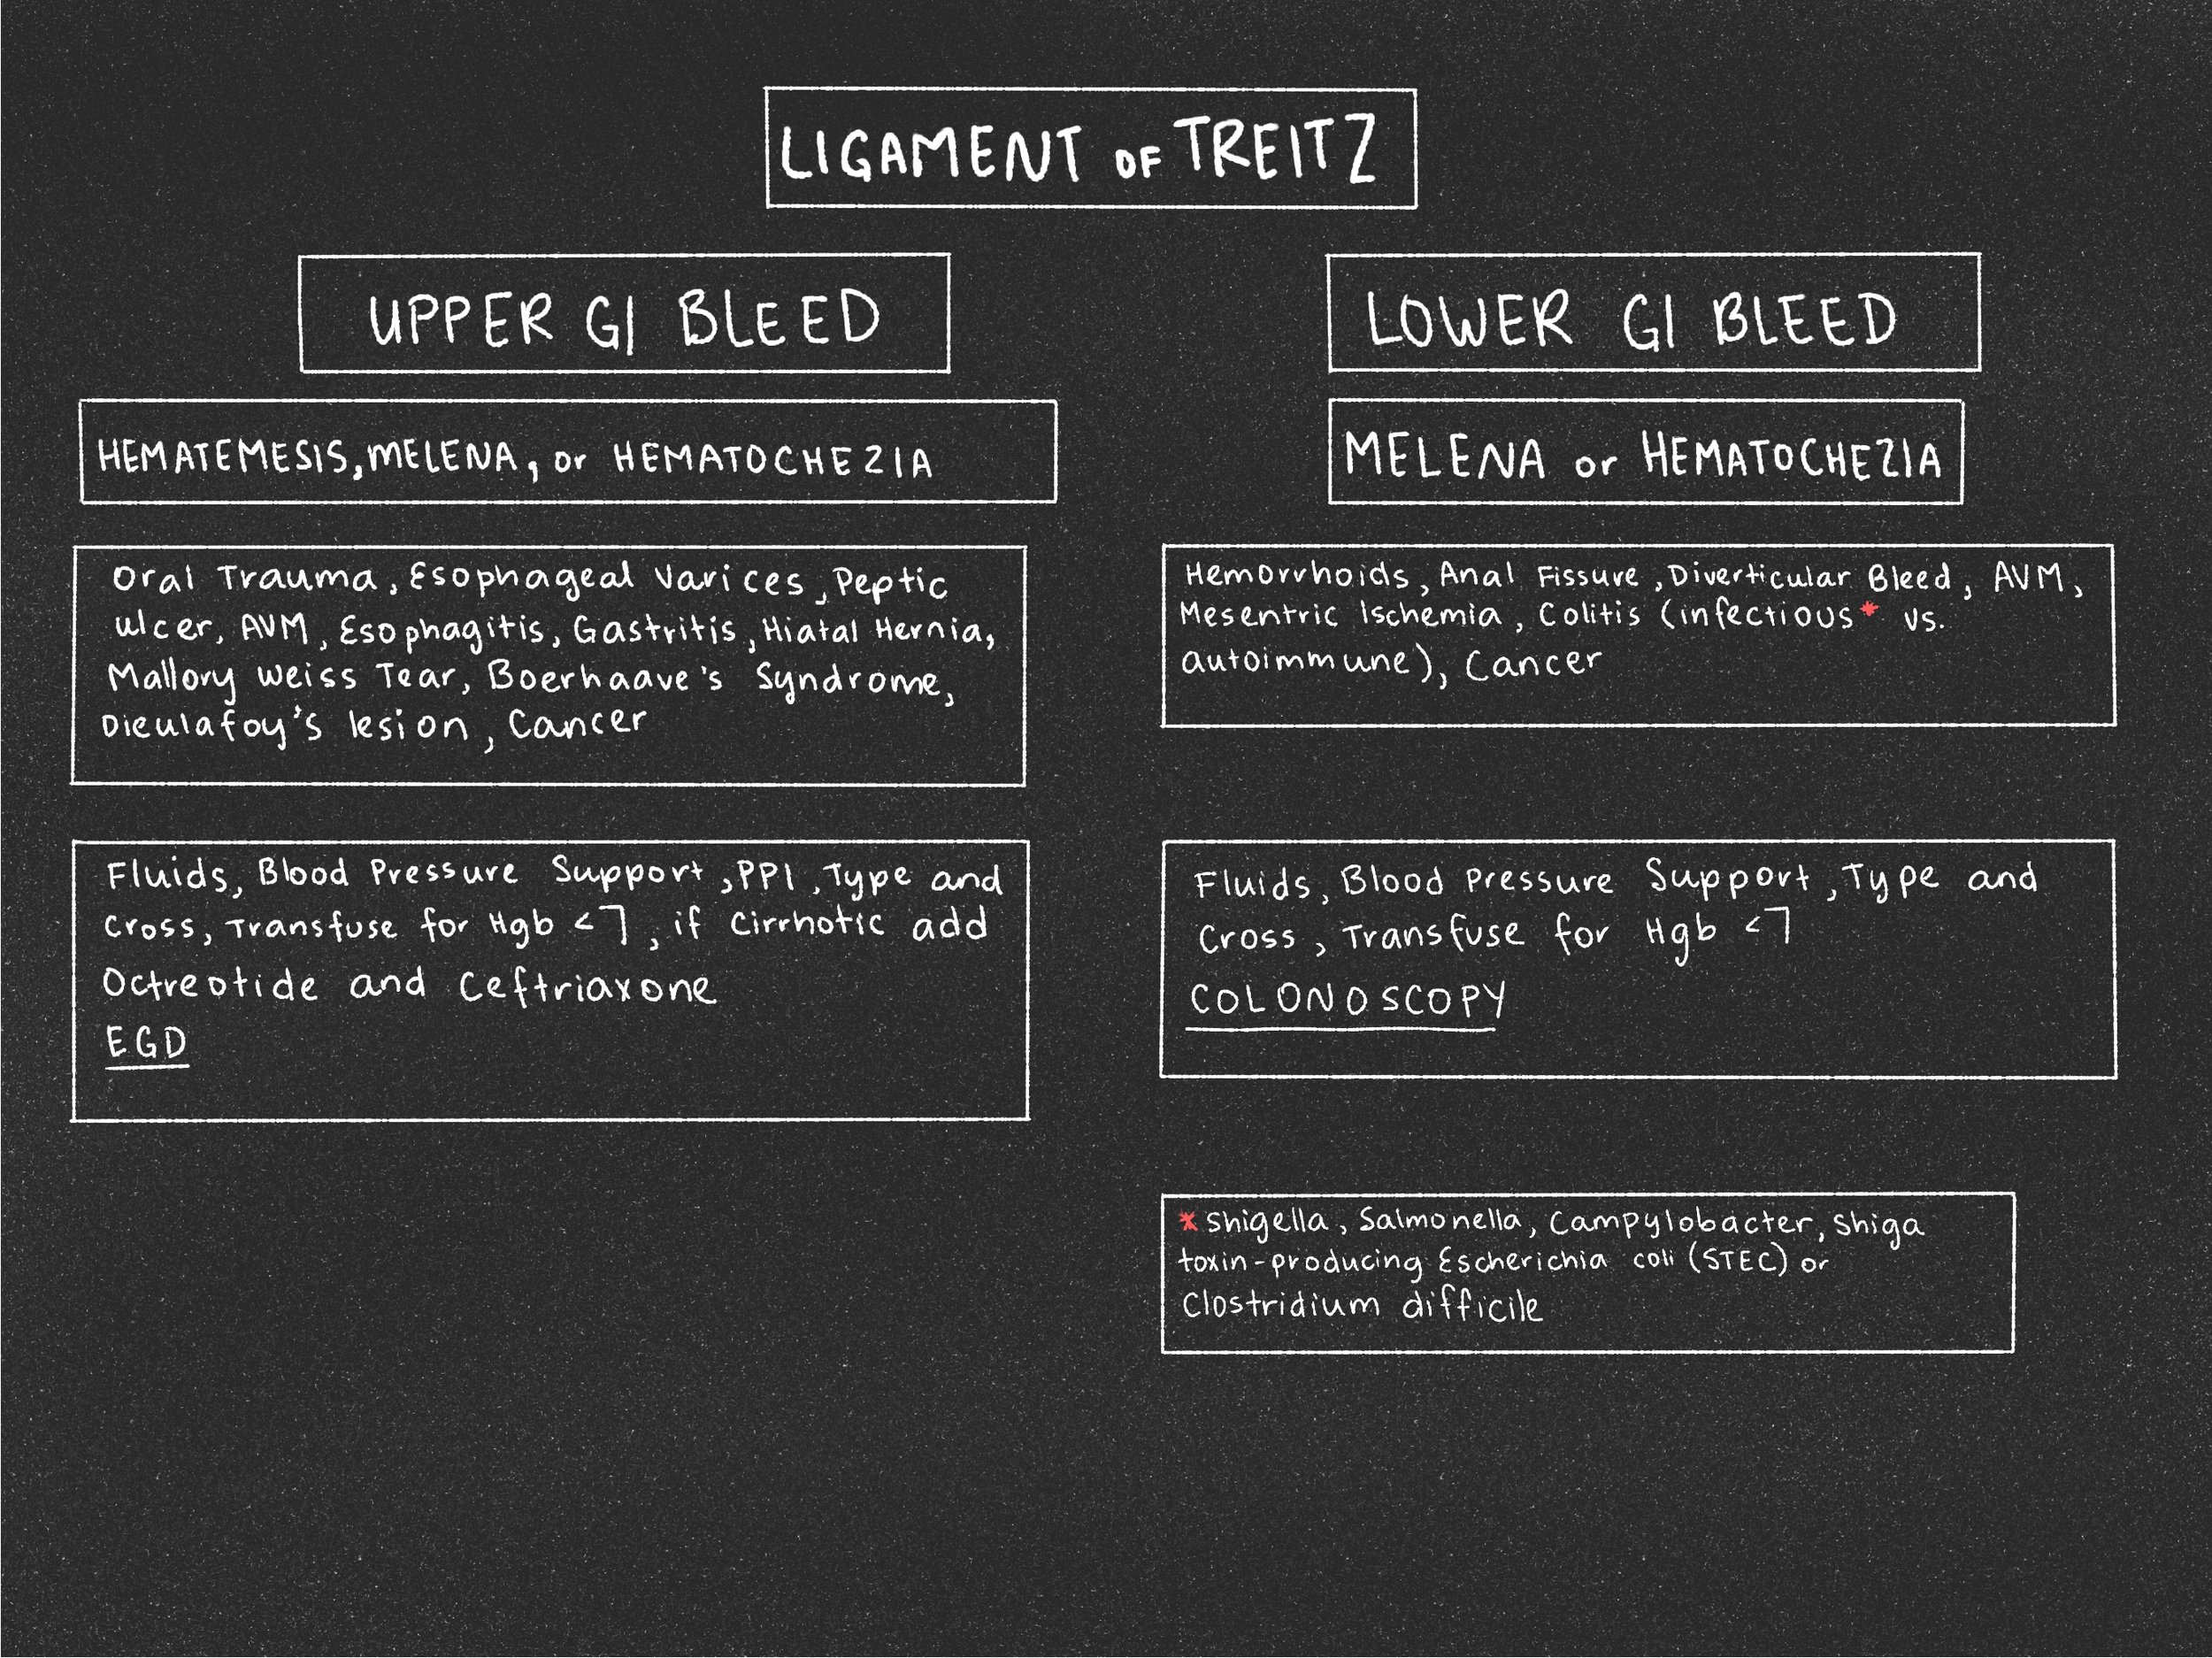 LIGAMENT OF TREITZ
UPPER GI BLEED
HEMATEMESIS, MELENA, or HEMATOCHEZIA
Oral Trauma, Esophageal Varices, Peptic
ulcer, AVM, Esophagitis, Gastritis, Hiatal Hernia,
Mallory Weiss Tear, Boerhaave's Syndrome,
Dieulafoy's lesion, Cancer
Fluids, Blood Pressure Support, PPI, Type and
Cross, Transfuse for Hgb <7, if Cirrhotic add
Octreotide and Ceftriaxone
EGD
LOWER GI BLEED
MELENA or HEMATOCHEZIA
Hemorrhoids, Anal Fissure, Diverticular Bleed, AVM,
Mesentric Ischemia, Colitis (infectious* vs.
autoimmune), Cancer
Fluids, Blood Pressure Support, Type and
Cross, Transfuse for Hgb <7
COLONOSCOPY
* Shigella, Salmonella, Campylobacter, Shiga
toxin-producing Escherichia coli (STEC) or
Clostridium difficile